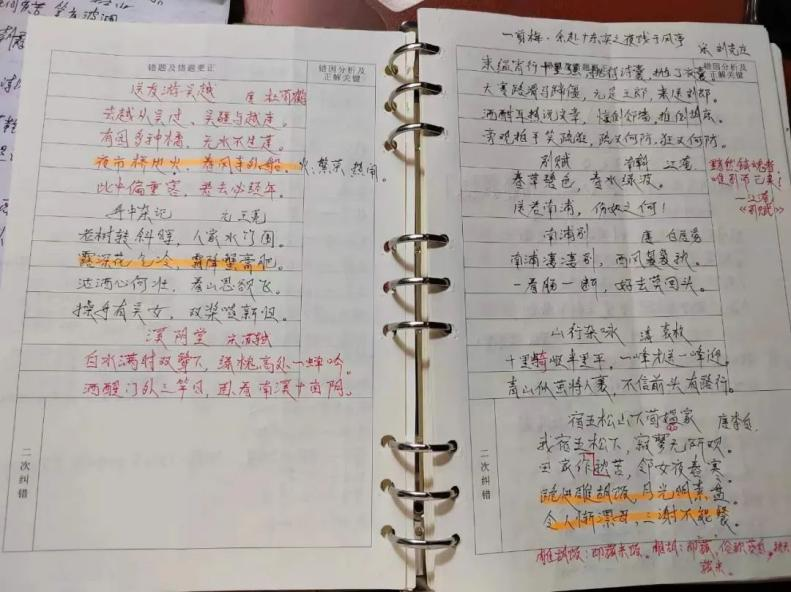 错题及错题更正
错因分析及
正解关键
送友游吴越 唐 杜荀鹤
去越从吴过,吴疆与越连。
有园多种橘,无水不生莲。
夜市桥边火,春风寺外船。
火:繁荣 热闹。
此中偏重客,君去必经年。
舟中杂记 元 王冕
老树转斜晖,人家水竹围。
露深花气冷,霜降蟹膏肥。
沽酒心何壮,看山思欲飞。
操舟有吴女,双桨唱新归。
溪阴堂 宋 苏轼
白水满时双鹭下,绿槐高处一蝉吟。
酒醒门外三竿日,卧看南溪十亩阴。
二次纠错
一剪梅·余赴广东实之夜饯于风亭
宋 刘克庄
束缊宵行十里强,挑得诗囊,抛了衣囊
错因分析及
正解关键
天寒路滑马蹄僵,元是王郎,来送刘郎。
酒酣耳热说文章,惊倒邻墙,推倒胡床。
旁观拍手笑疏狂,疏又何妨,狂又何妨。
别赋 南朝 江淹
春草碧色,春水绿波。
送君南浦,伤如之何!
黯然销魂者,
唯别而已矣!
—江淹
《别赋》
南浦别 唐 白居易
南浦凄凄别,西风袅袅秋。
一看肠一断,好去莫回头。
山行杂咏 清 袁枚
十里崎岖半里平,一峰才送一峰迎。
青山似茧将人裹,不信前头有路行。
宿五松山下荀媪家 唐 李白
我宿五松下,寂寥无所欢。
田家作秋苦,邻女夜舂寒。
跪进雕胡饭,月光明素盘。
令人惭漂母,三谢不能餐。
二次纠错
雕胡饭:即菰米饭。雕胡:即菰,俗称茭白